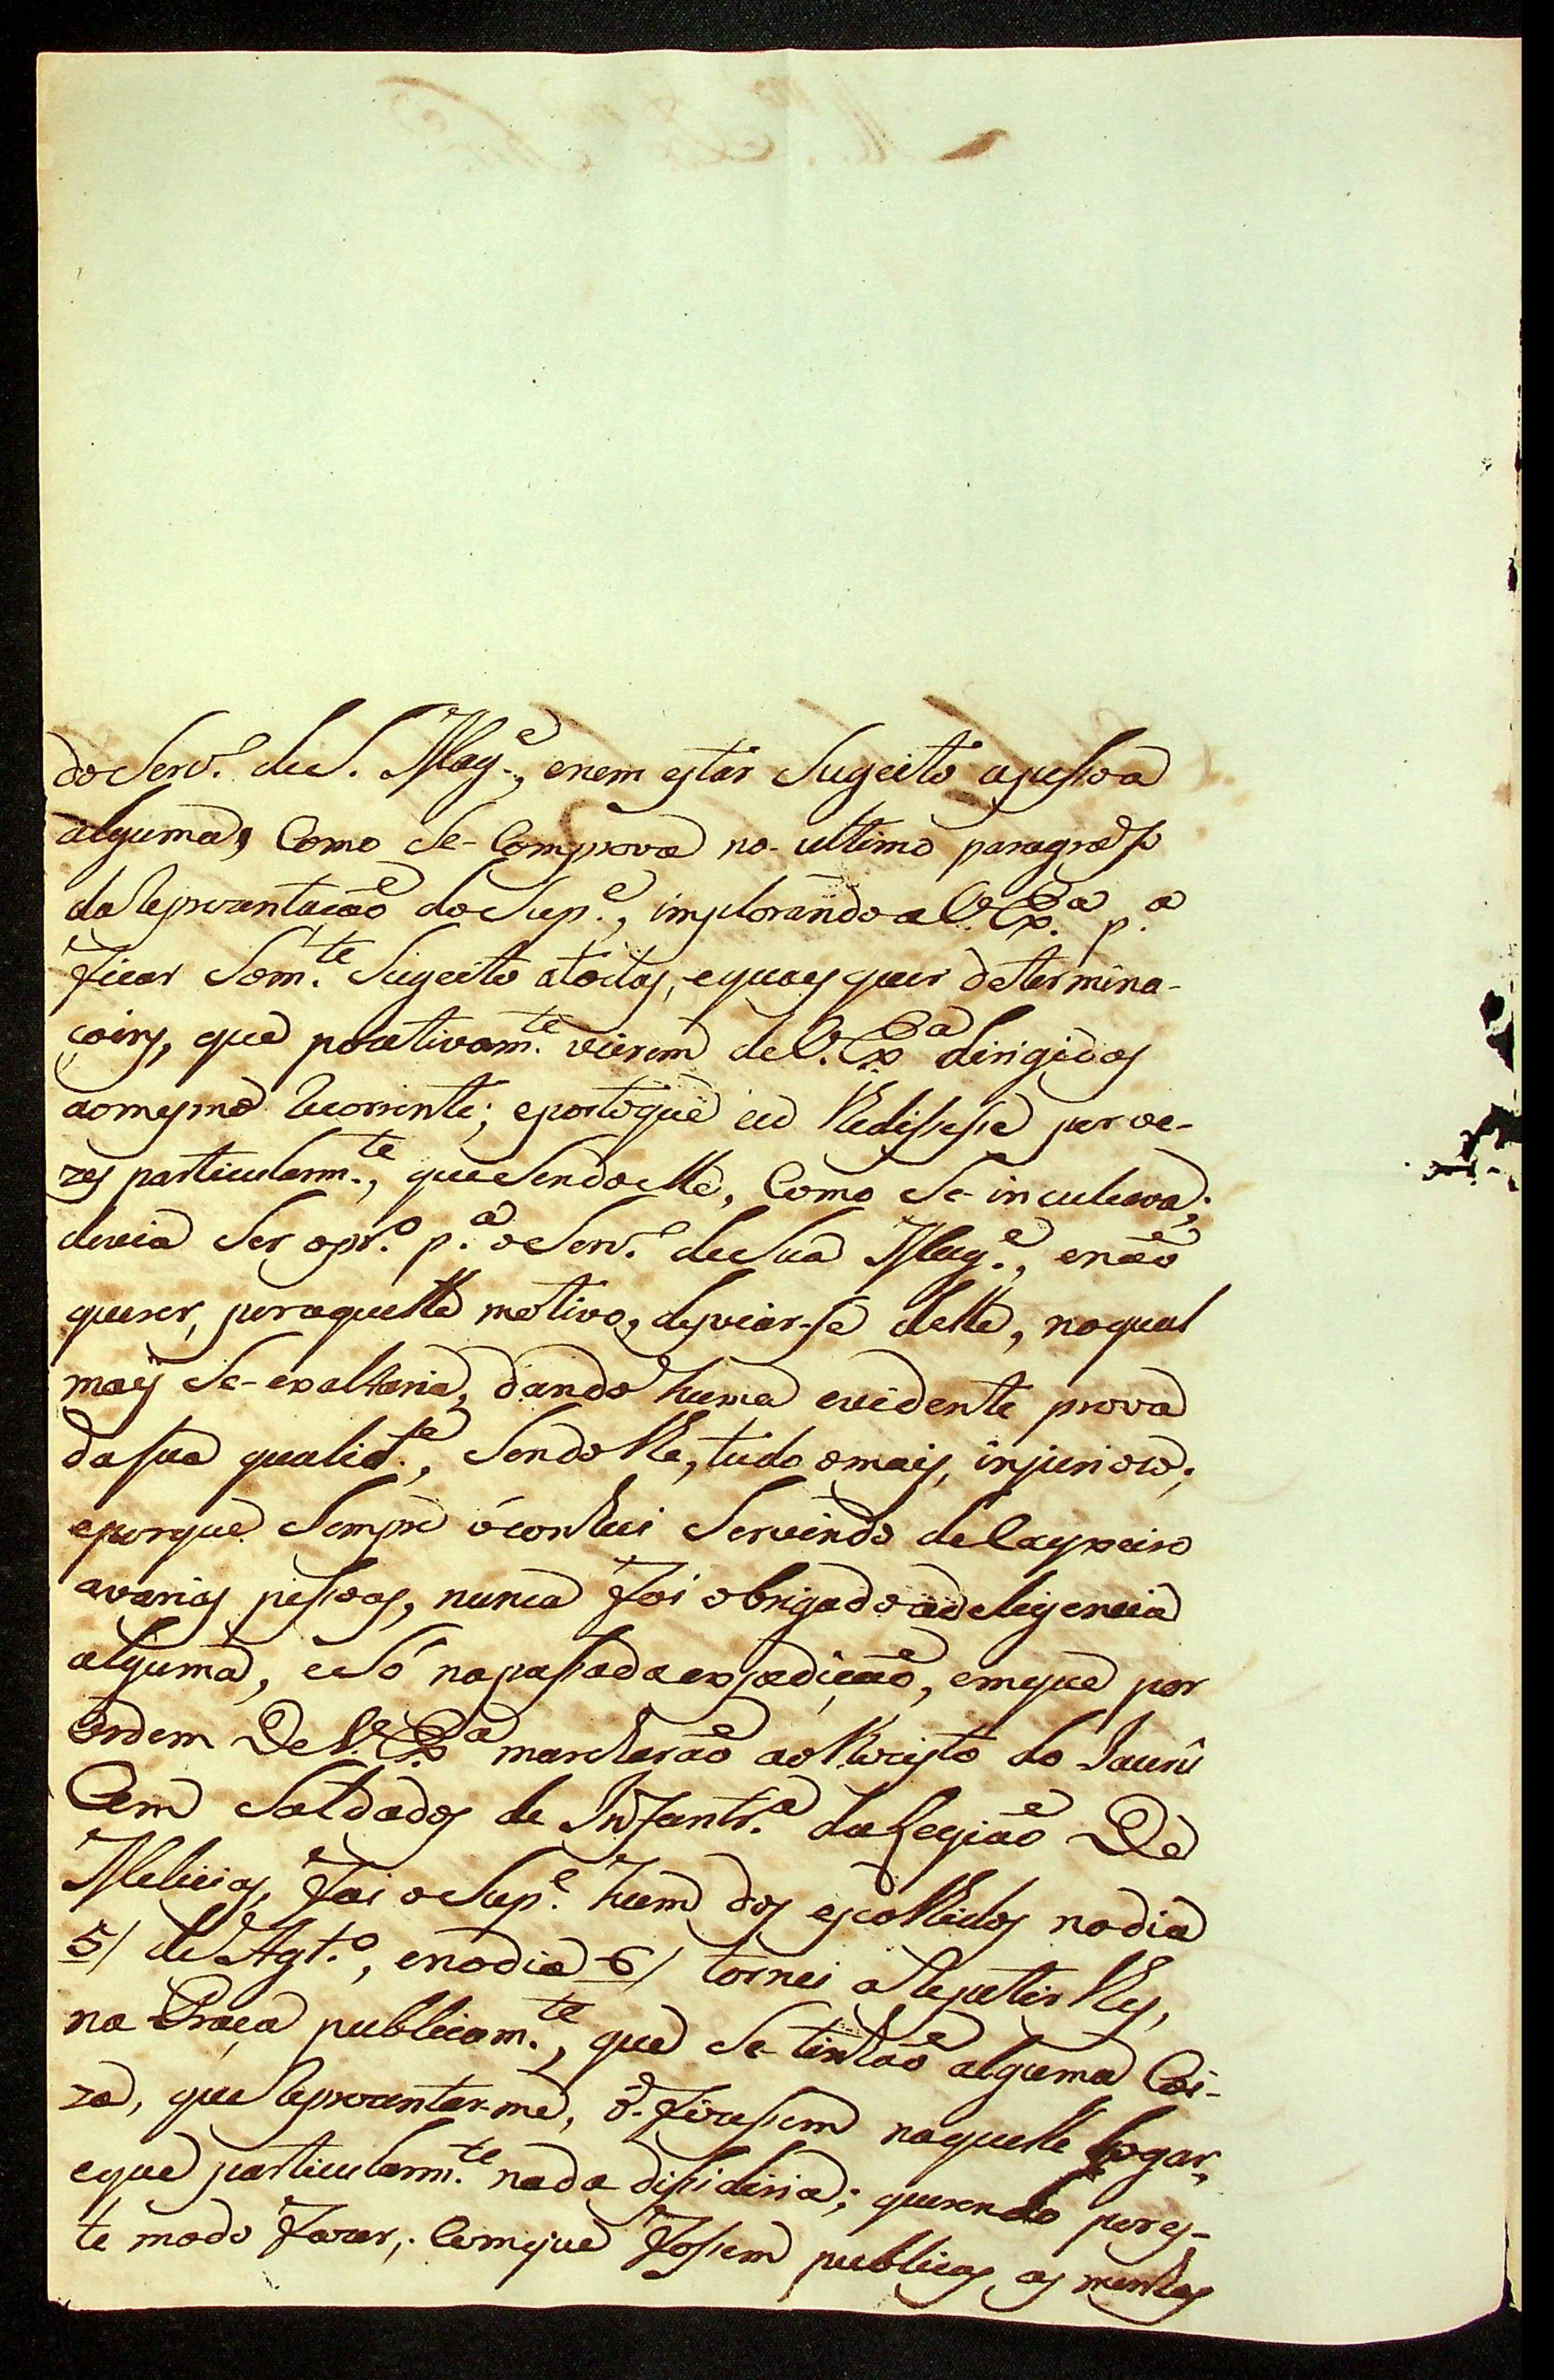 do Serv.º de S. Mag.e, enem estar Sugeito apessoa
alguma, Como Se-Comprova no-ultimo paragrafo
da Reprezentação do Sup.e, implorando a V. Ex.a p.a
ficar Som.te Sugeito atodas, equaes quer determina-
çoins, que pozetivam.te vierem de V. Ex.a dirigidas
aomesmo Recorrente; eposto que eu lhe dissesse por ve-
zes particularm.te, que Sendo elle, Como Se-inculcava;
devia Ser opr.º p.a o Serv.º de Sua Mag.e, enão
querer, por aquelle motivo, desviar-se delle, noqual
mais Se-exaltaria, dando huma evidente prova
dasua qualid.e, Sendo lhe, tudo omais, injuriozo;
eporque Sempre oconheci Servindo de Caxeiro
avarias pessoas, nunca foi obrigado adeligencia
alguma, e Só napassada expedição, emque por
ordem De V. Ex.a marcharão ao Rezisto do Jaurú
Cem Soldados de Infantr.a da Legião De
Melicias, foi o Sup.e hum dos escolhidos nodia
5/ de Agt.º, enodia 6/ tornei a Repetir lhes,
na Praça publicam.te, que Se-tinhão alguma Coi-
za, que Reprezentar-me, o-fizessem naquelle Logar,
eque particularm.te nada difiria; querendo pores-
te modo fazer, Comque fossem publicas, as minhas